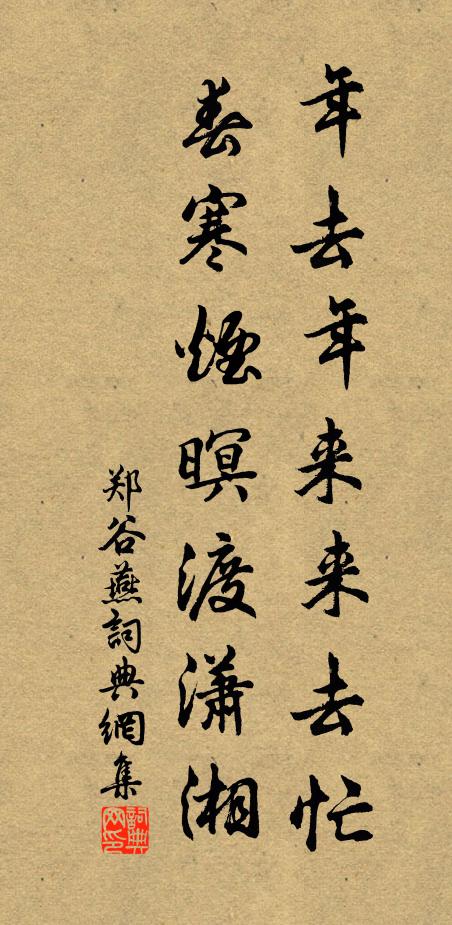 年去年来来去忙
春寒煙暝渡瀟湘
郑谷燕詞典網集
詞典网印